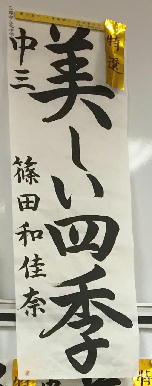 特選
美しい四季
中三
篠田和佳奈